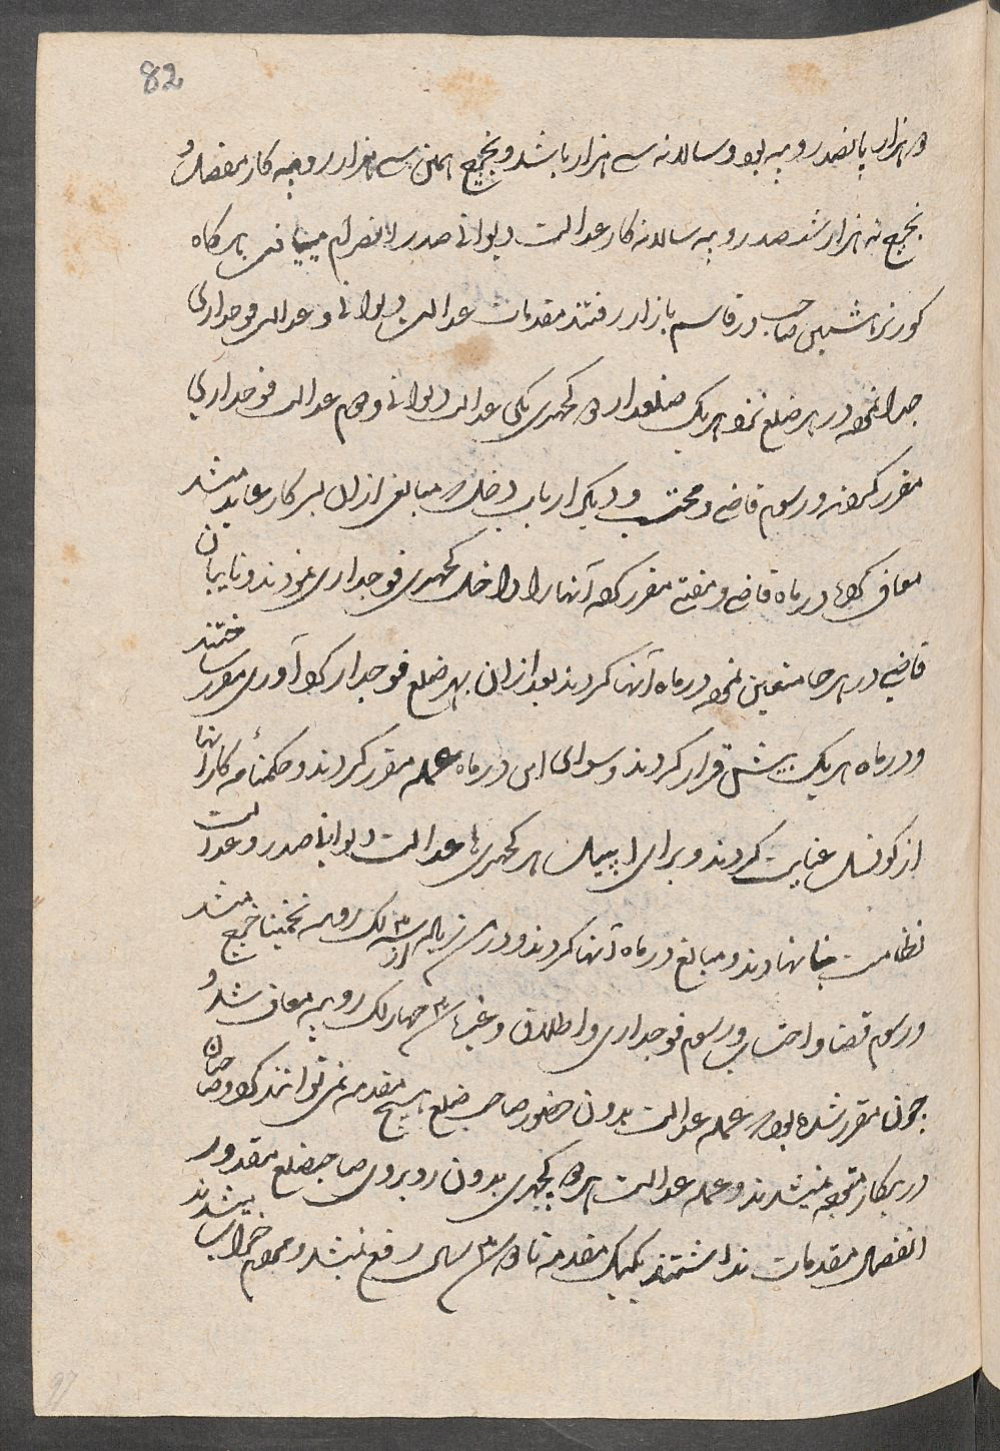 82
دو هزار پانصد روپیه بود و سالانه سی هزار باشد و بخرج همین سی هزار روپیه کار مفصل و
بخرج نه هزار ششصد روپیه سالانه کار عدالت دیوانی صدر انصرام مییافت هرگاه
کورنر هاشبین صاحب در قاسم بازار رفتند مقدمات عدالت دیوانی و عدالت فوجداری
جدا نموده در هر ضلع نزد هر یک ضلعدار دو کچهری یکی عدالت دیوانی و دوم عدالت فوجداری
مقرر کردند و رسوم قاضی و محتسب و دیگر ارباب دخل که مبالغی ازان بسرکار عاید میشد
معاف کرده درماه قاضی و مفتی مقرر کرده آنها را داخل کچهری فوجداری نمودند و نایبان
قاضی در هر جا متعین نموده درماه آنها کردند بعد ازان بهر ضلع فوجدار کرد آوری مقرر ساختند
و درماه هر یک بیش قرار کردند و سوای این درماه عمله مقرر کردند و حکمنامه کار آنها
از کونسل عنایت کردند و برای اپیل هر کچهری ها عدالت دیوانی صدر و عدالت
نظامت بنا نهادند و مبالغ درماه آنها کردند و درین زیاده از سه لک روپیه تخمینا خرج میشد
و رسوم قضا و احتساب و رسوم فوجداری و اطلاق و غیره سه چهار لک روپیه معاف شد و
چون مقرر شده بود که عمله عدالت بدون حضور صاحب ضلع هیچ مقدمه نمی توانند کرد و صاحبان
درینکار متوجه نمیشدند و عمله عدالت هر دو کچهری بدون روبروی صاحب ضلع مقدور
انفصال مقدمات نداشتند یک یک مقدمه تا دو سه سال رفع نمیشد و مردم خراب میشدند
97